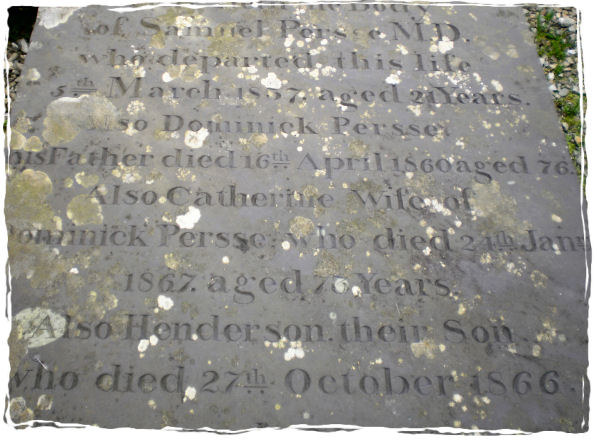 of Samuel Persse M.D.
who departed this life
5th March 1857. aged 21 Years.
Also Dominick Persse:
his Father died 16th April 1860 aged 76.
Also Catherine Wife of
Dominick Persse: who died 24th Jany
1867. aged 76 Years.
Also Henderson. their Son.
who died 27th October 1866.